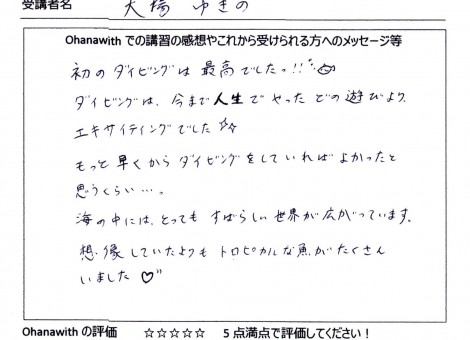 受講者名 大場 ゆきの
Ohanawith での講習の感想やこれから受けられる方へのメッセージ等
初のダイビングは最高でしたっ!!
ダイビングは、今まで人生でやったどの遊びより、
エキサイティングでした☆☆
もっと早くからダイビングをしていればよかったと
思うくらい…。
海の中には、とってもすばらしい世界が広がっています。
想像していたよりもトロピカルな魚がたくさん
いました♡"
Ohanawith の評価 ☆☆☆☆☆ 5点満点で評価してください!